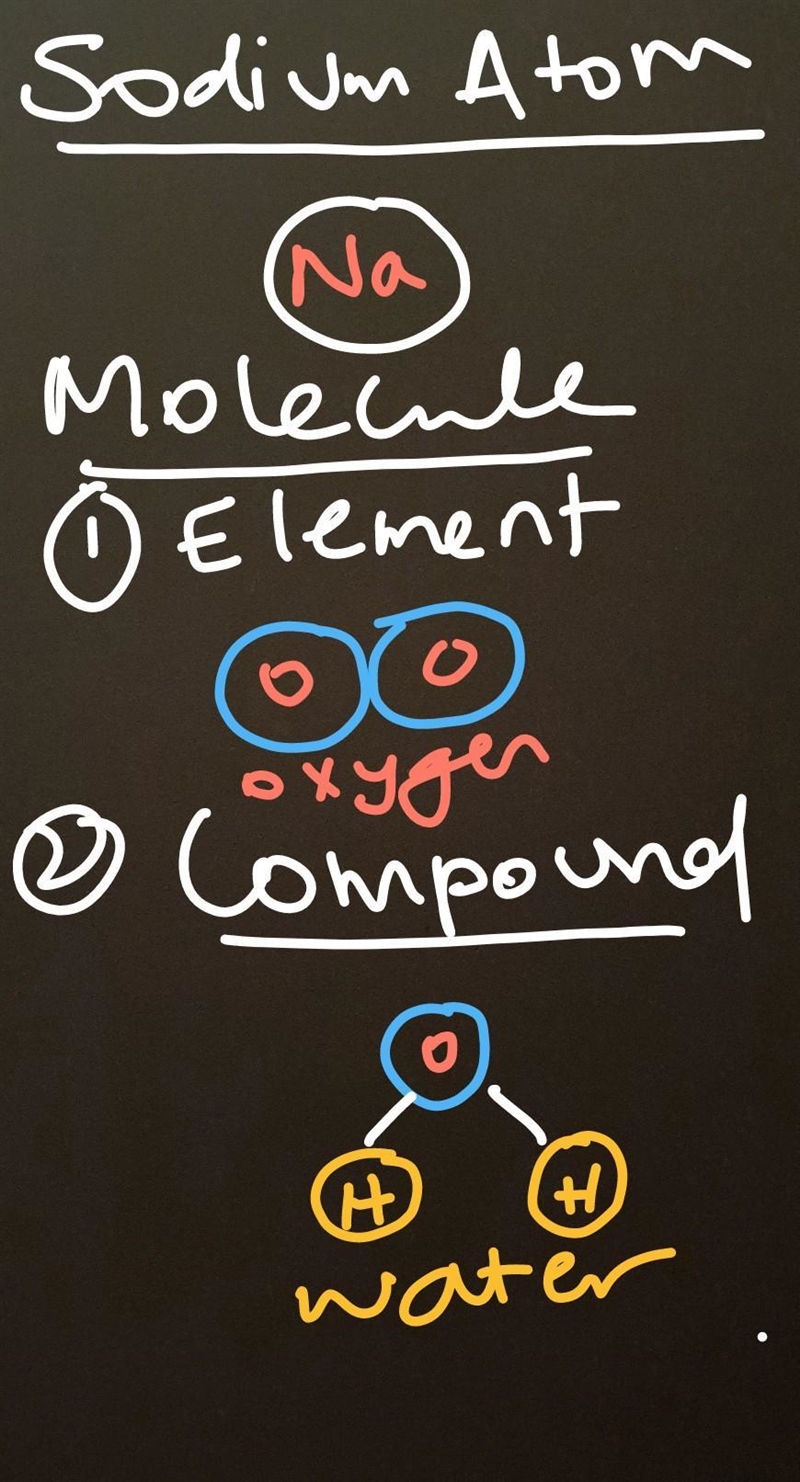 Sodium Atom
Na
Molecule
1 Element
O O
oxygen
2 Compound
O
H H
water